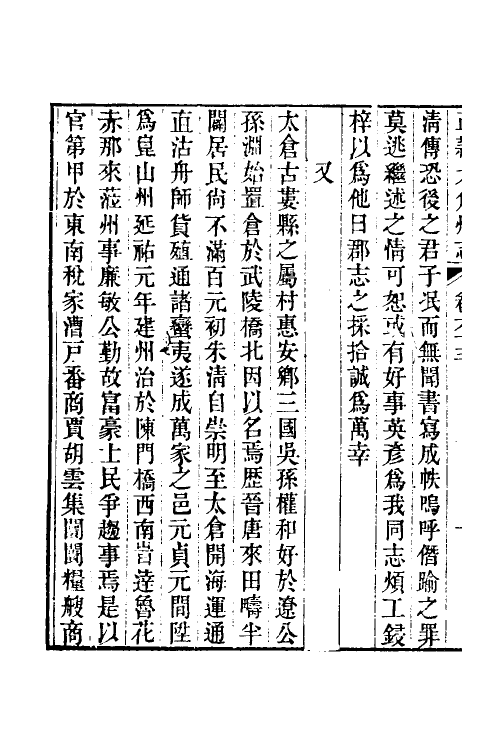 清傳恐後之君子泯而無聞書寫成帙嗚呼僭踰之罪
莫逃繼述之情可恕或有好事英彥爲我同志煩工鋟
梓以爲他日郡志之採拾誠爲萬幸
又
太倉古婁縣之屬村惠安鄉三國吳孫權和好於遼公
孫淵始置倉於武陵橋北因以名焉歷晉唐來田疇半
闢居民尙不滿百元初朱淸自崇明至太倉開海運通
直沽舟師貨殖通諸蠻夷遂成萬家之邑元貞元間陞
爲崑山州延祐元年建州治於陳門橋西南岢達魯花
赤那來蒞州事廉敏公勤故富豪士民爭趨事焉是以
官第甲於東南稅家漕戶番商賈胡雲集闤闠糧艘商